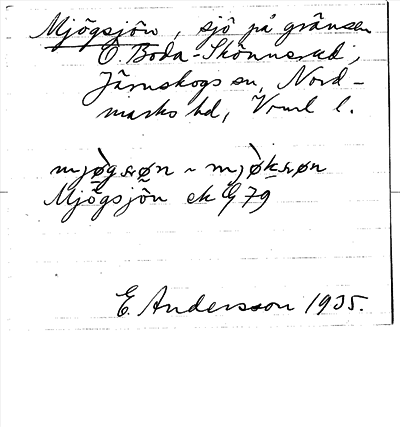 Mjögsjön, sjö på gränsen
Ö. Boda-Skönnerud,
Järnskogs sn, Nord-
marks hd, Vrml l.
mjøgsøn ~ mjøksøn
Mjögsjön ek G 79
E. Andersson 1935.